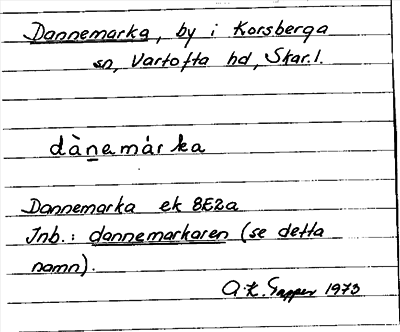 Dannemarka, by i Korsberga
sn, Vartofta hd, Skar.l.
dànemárka
Dannemarka ek 8E2a
Inb.: dannemarkaren (se detta
namn).
1973